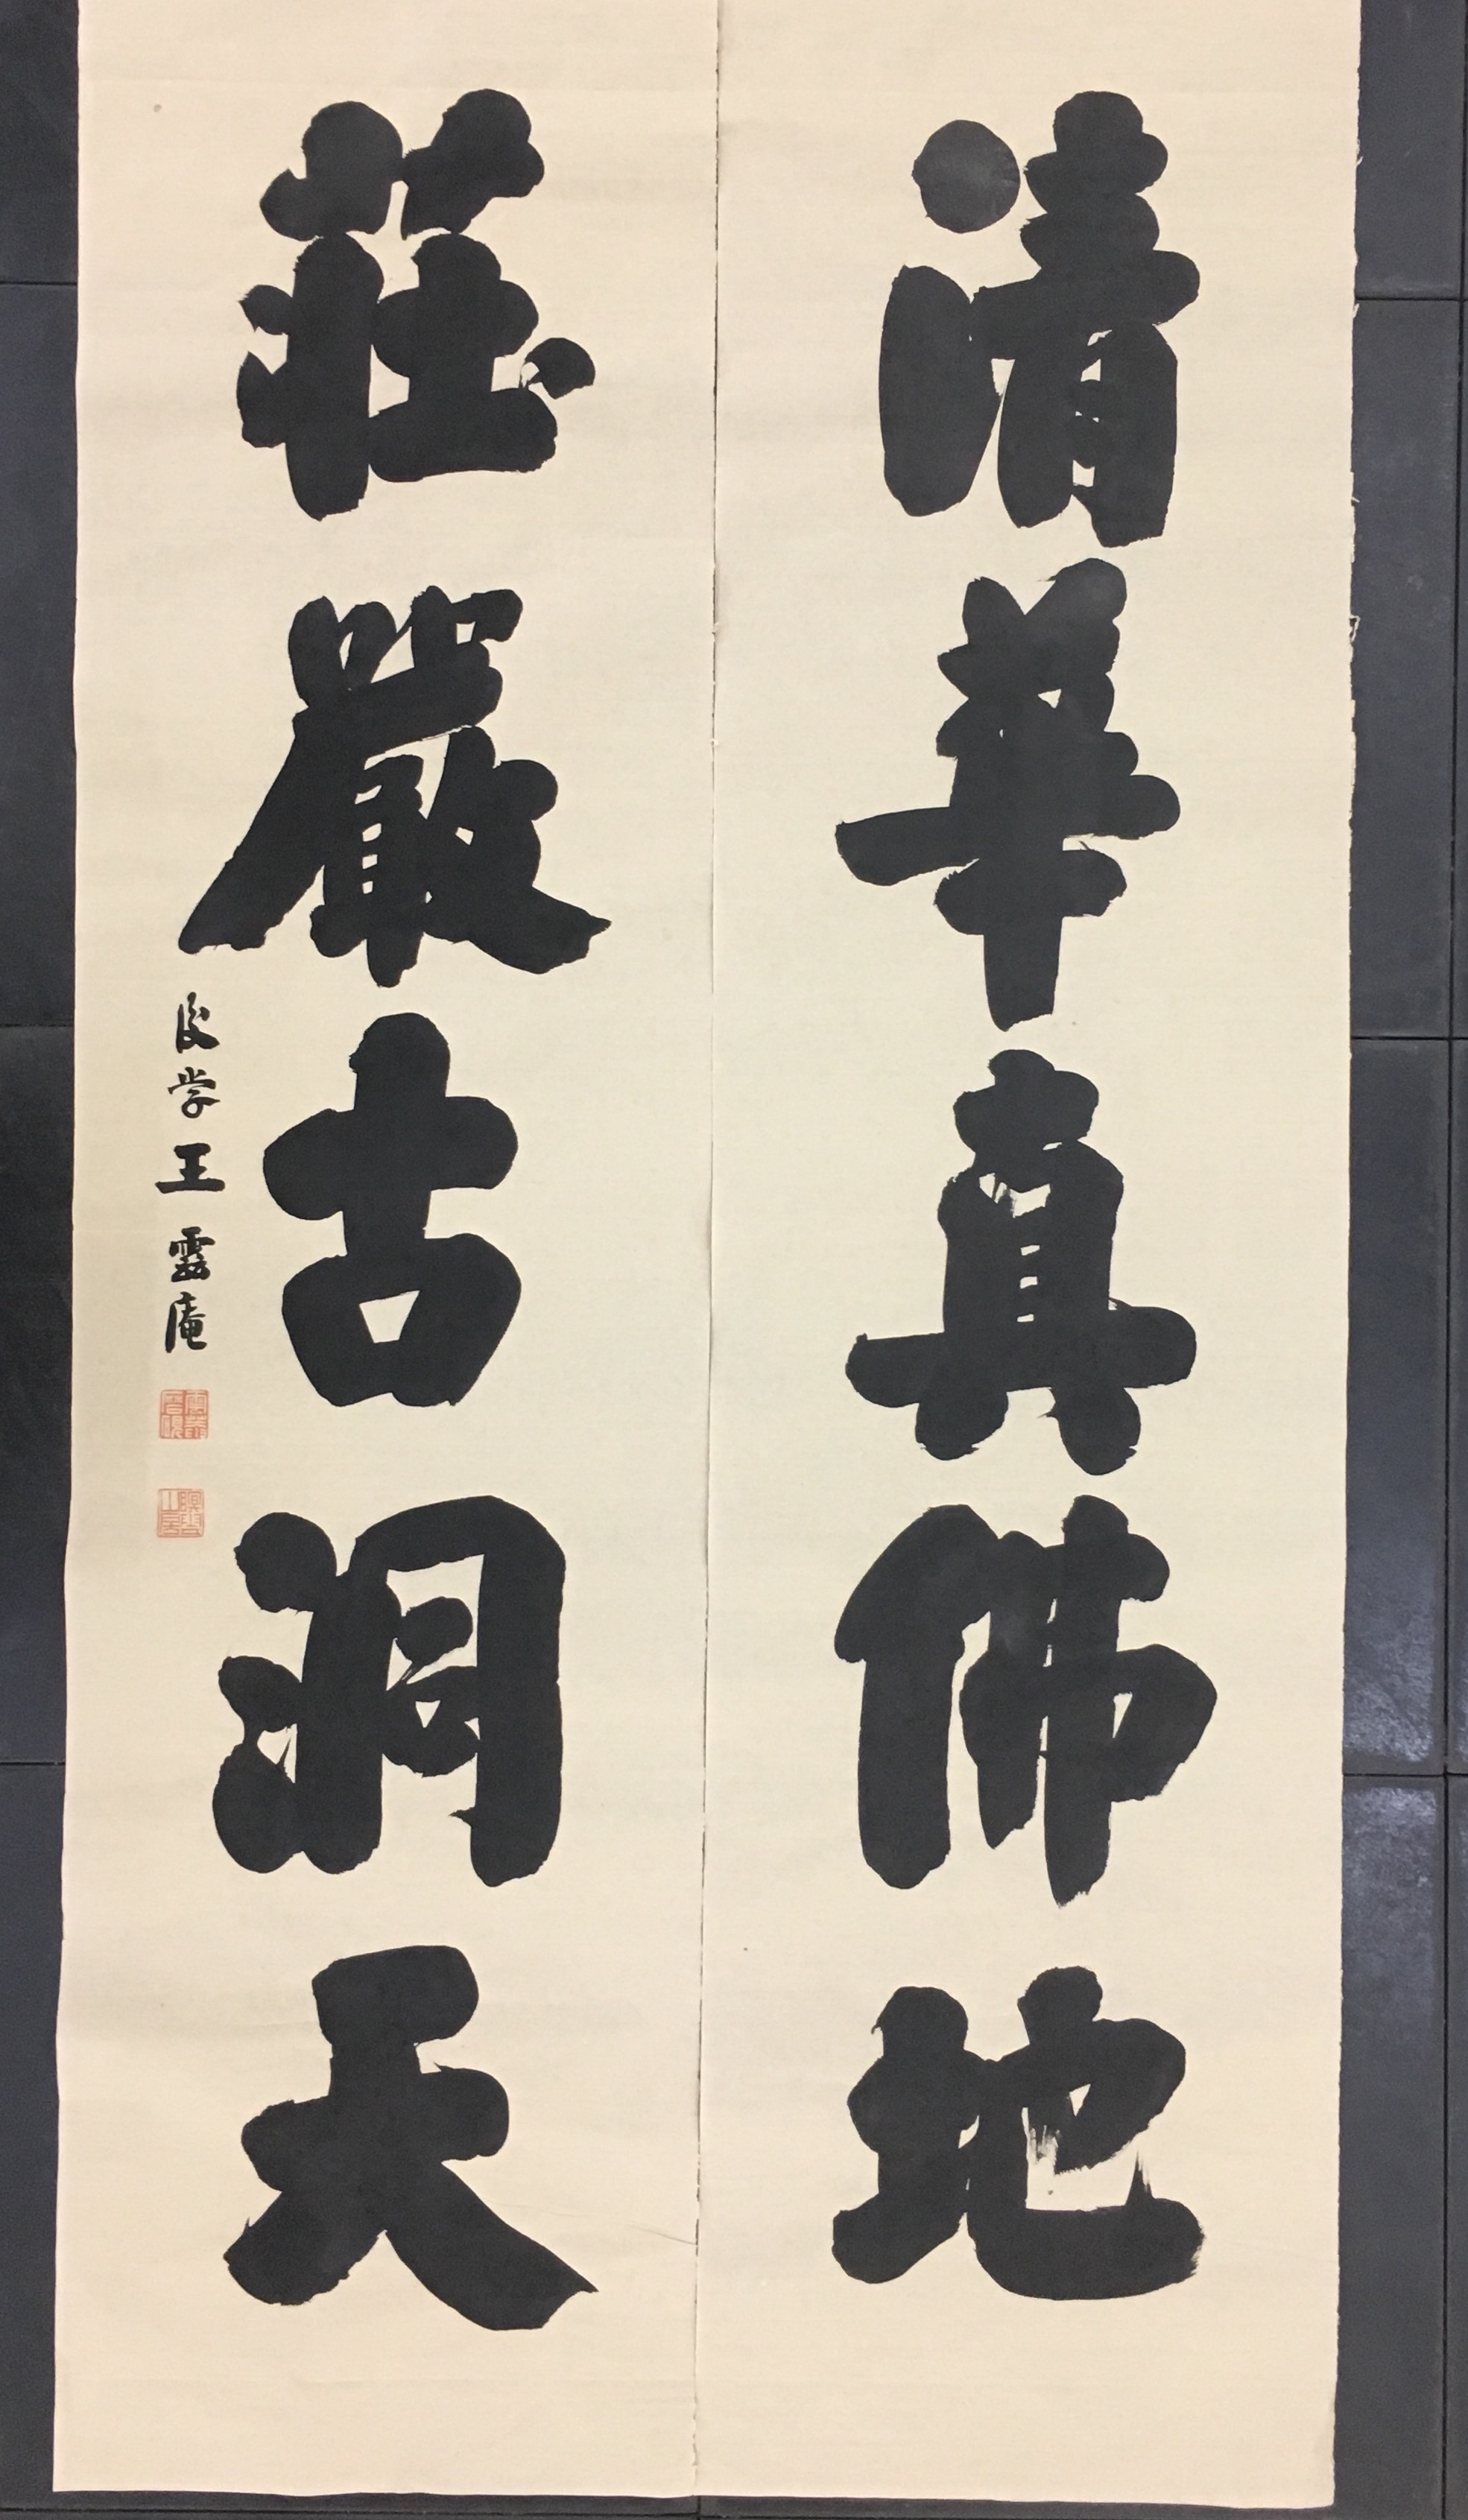 清華真佛地
莊嚴古洞天
後学王雲庵